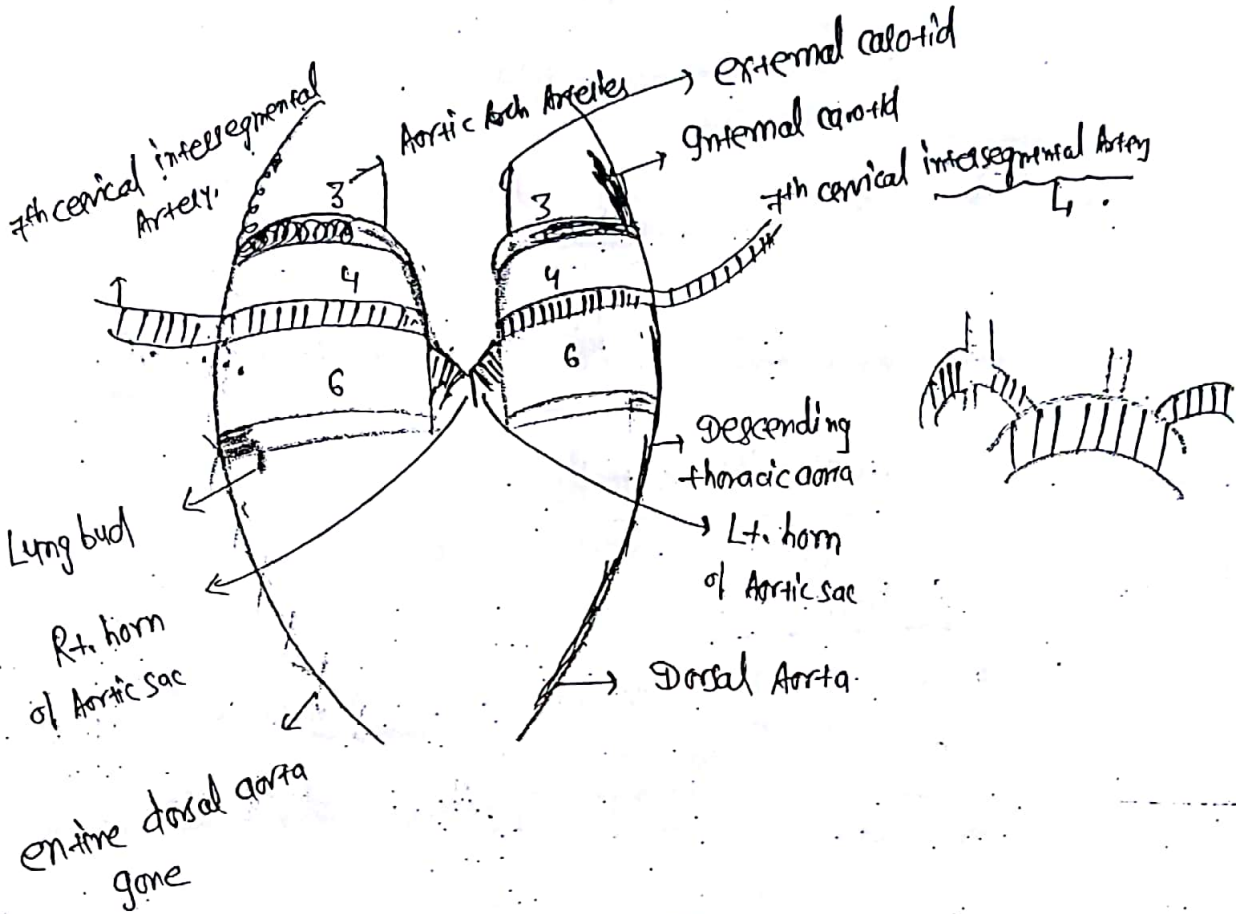 7th cervical intersegmental
Artery.
Aortic Arch Arteries
external carotid
Internal carotid
7th cervical intersegmental Artery
3
3
4
4
6
6
Lung bud
Descending
thoracic aorta
Rt. horn
of Aortic sac
Lt. horn
of Aortic sac
Dorsal Aorta
entire dorsal aorta
gone